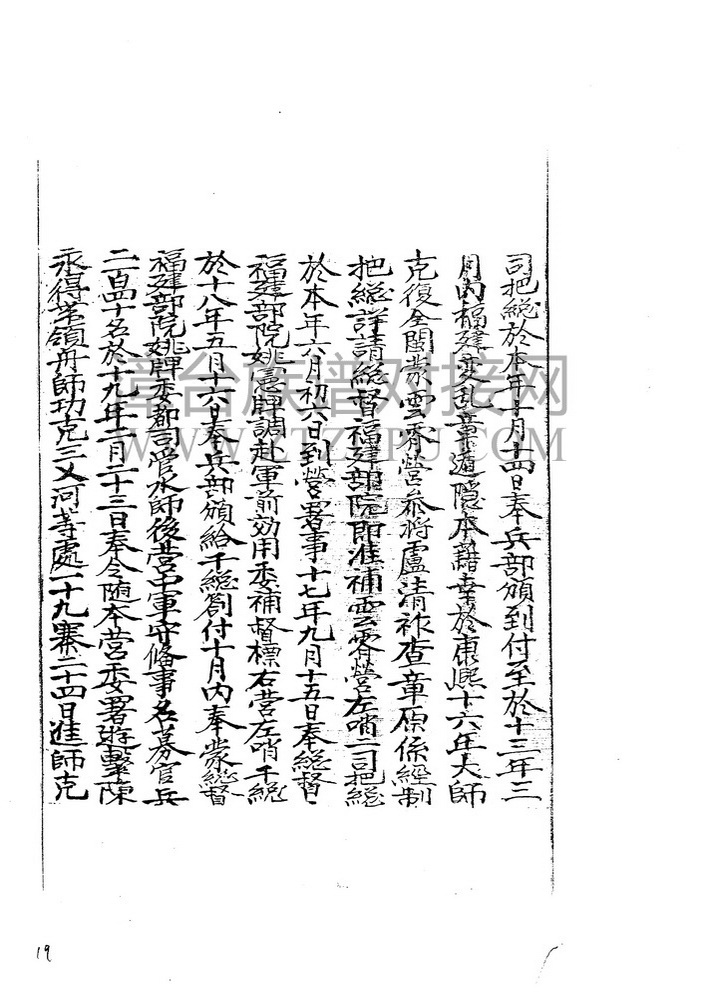 司把総於本年十月十四日奉兵部頒到付至於十三年三
月內福建变乱章遁隱本藉幸於康熙十六年大師
克復全閩蒙雲霄營叅将盧清袱查章原係經制
把総詳請総督福建部院即准補雲霄營左哨二司把総
於本年六月初六日到營署事十七年九月十五日奉総督
福建部院姚憲牌調赴軍前効用委補督標右营左哨千総
於十八年五月十六日奉兵部頒給千総劄付十月內奉蒙総督
福建部院姚牌委都司管水師後营中軍守俻事名募官兵
二百四十名於十九年二月二十三日奉令随本营委署遊擊陳
永得带領舟師功克三义河等處一十九寨二十四日進師克
章台族谱对接网
WWW.ZTZUPU.COM
19